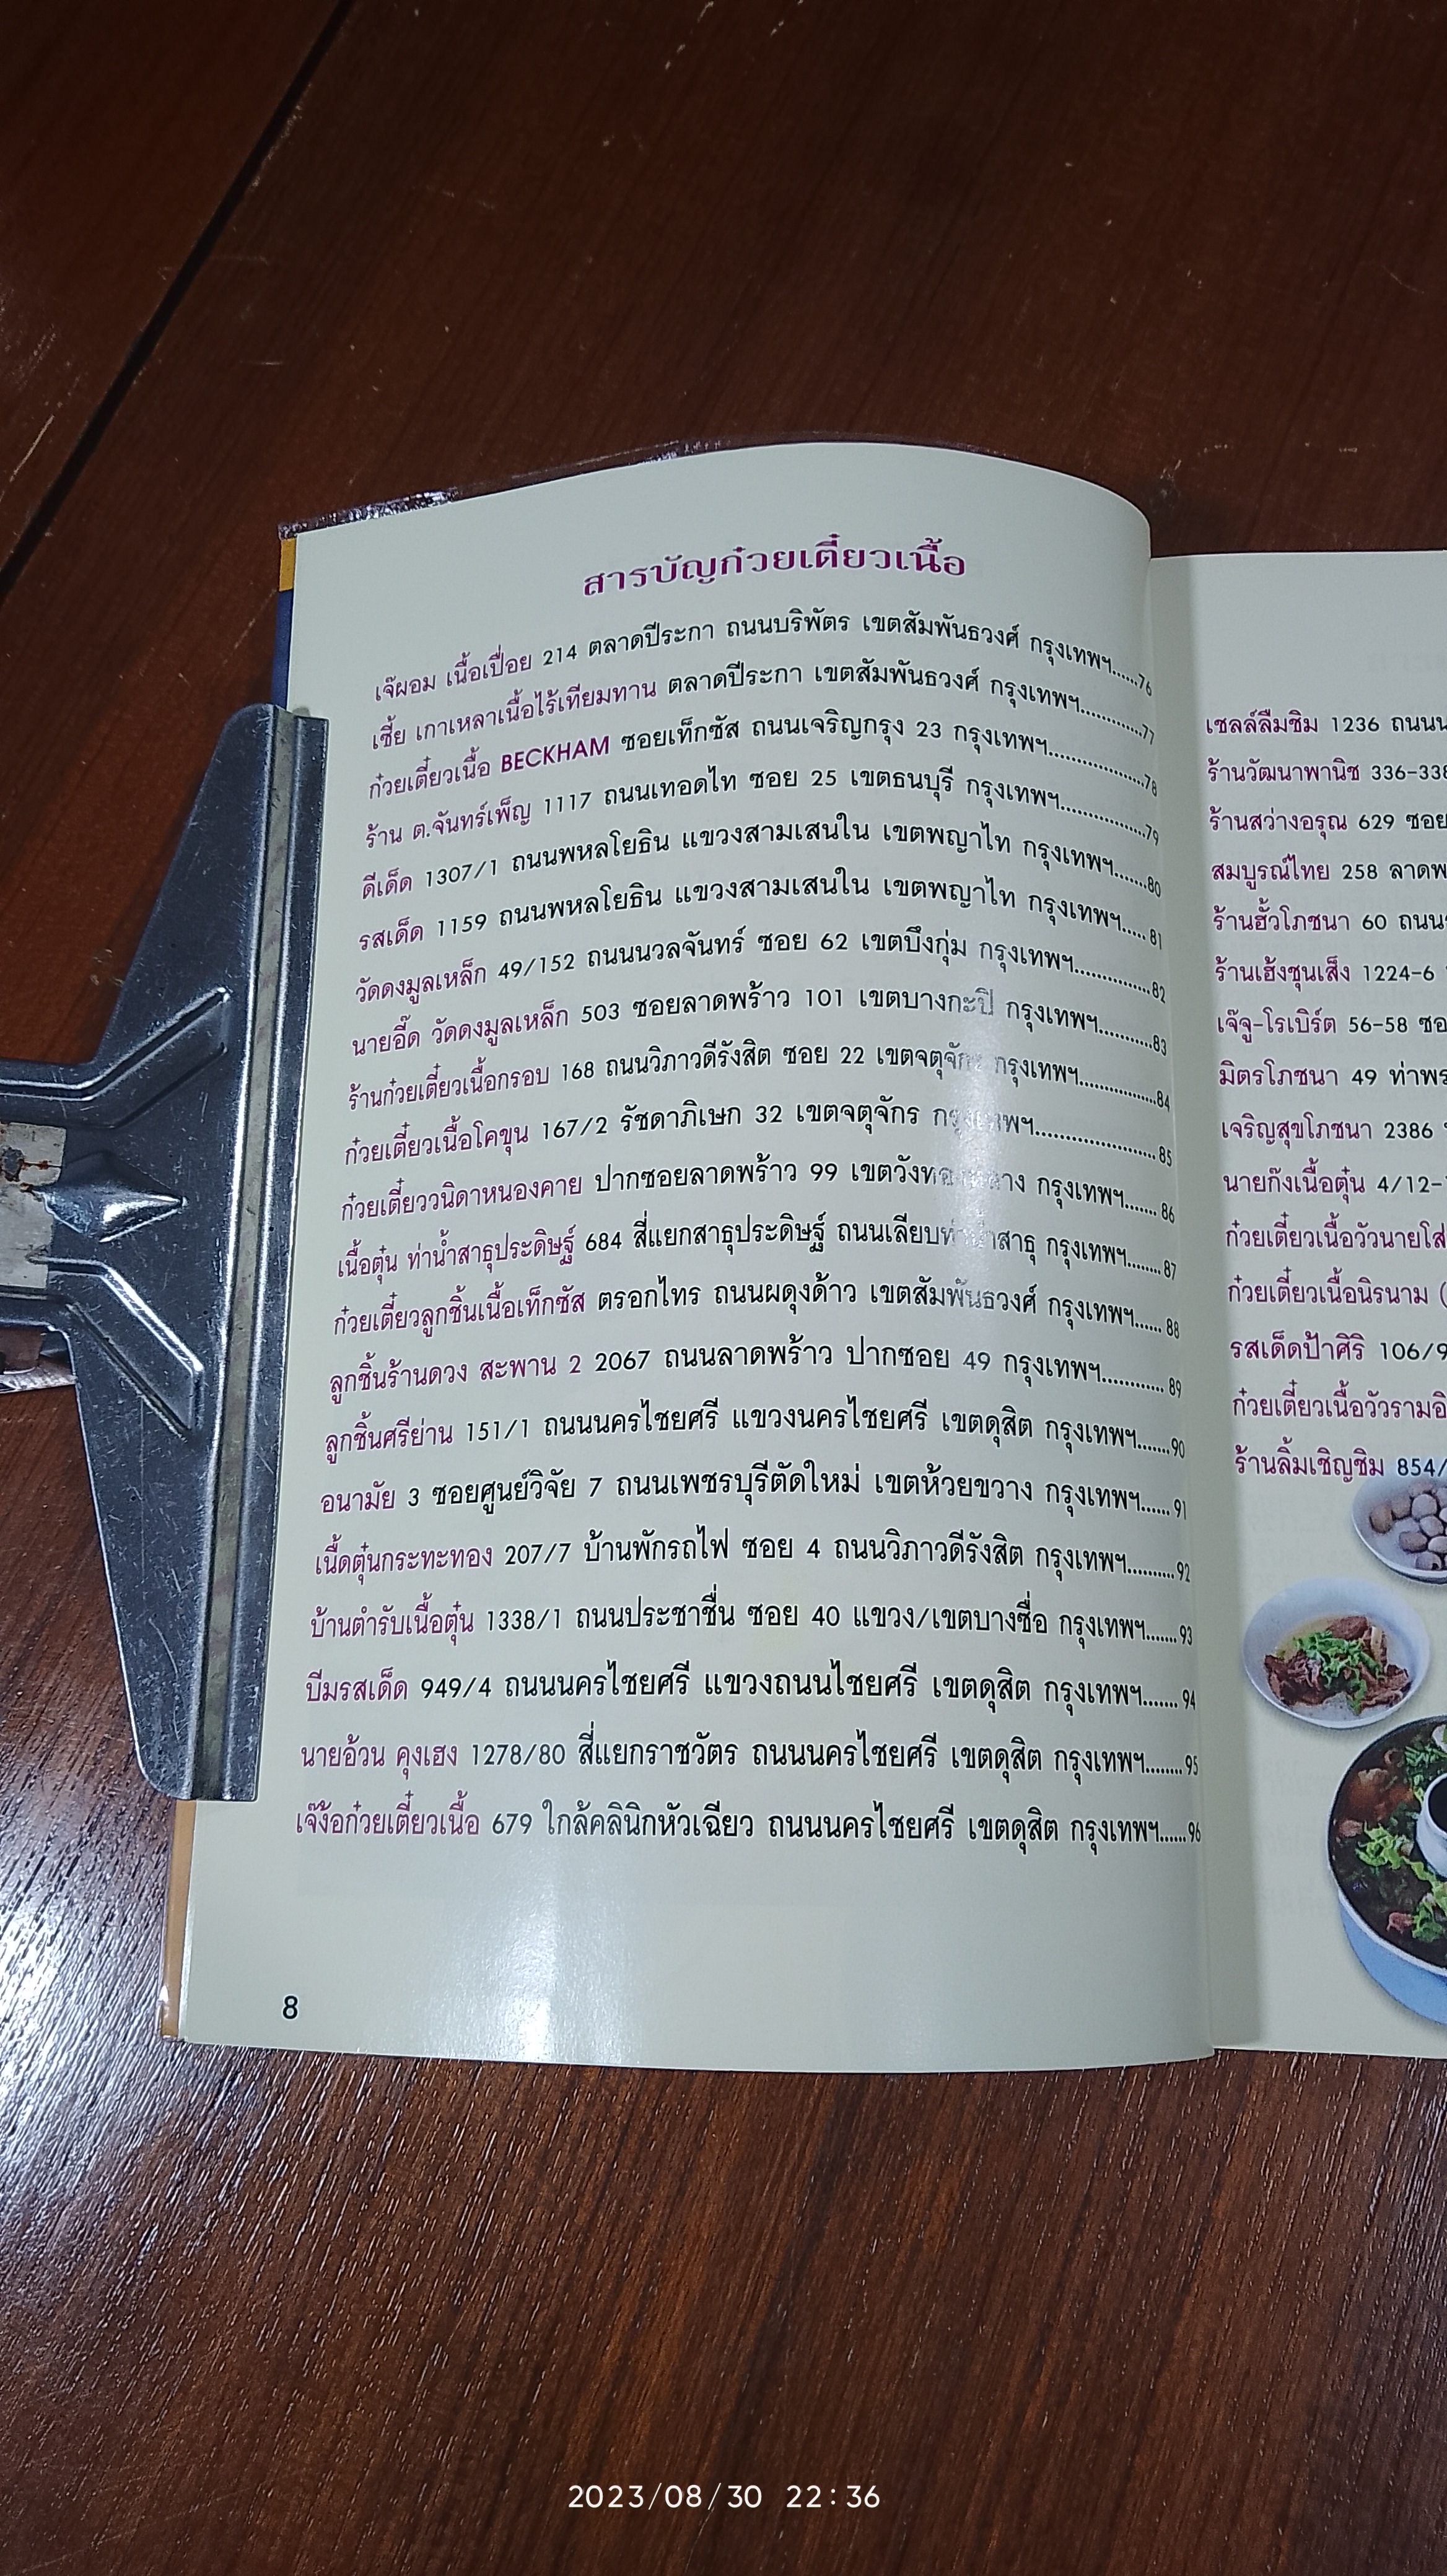 สารบัญก๋วยเตี๋ยวเนื้อ
เจ๊ผอม เนื้อเปื่อย 214 ตลาดปีระกา ถนนบริพัตร เขตสัมพันธวงศ์ กรุงเทพฯ......76
เซี้ย เกาเหลาเนื้อไร้เทียมทาน ตลาดปีระกา เขตสัมพันธวงศ์ กรุงเทพฯ............77
ก๋วยเตี๋ยวเนื้อ BECKHAM ซอยเท็กซัส ถนนเจริญกรุง 23 กรุงเทพฯ...................78
ร้าน ต.จันทร์เพ็ญ 1117 ถนนเทอดไท ซอย 25 เขตธนบุรี กรุงเทพฯ.................79
ดีเด็ด 1307/1 ถนนพหลโยธิน แขวงสามเสนใน เขตพญาไท กรุงเทพฯ.......80
รสเด็ด 1159 ถนนพหลโยธิน แขวงสามเสนใน เขตพญาไท กรุงเทพฯ..... 81
วัดดงมูลเหล็ก 49/152 ถนนนวลจันทร์ ซอย 62 เขตบึงกุ่ม กรุงเทพฯ...............82
นายอี๊ด วัดดงมูลเหล็ก 503 ซอยลาดพร้าว 101 เขตบางกะปิ กรุงเทพฯ...........83
ร้านก๋วยเตี๋ยวเนื้อกรอบ 168 ถนนวิภาวดีรังสิต ซอย 22 เขตจตุจักร กรุงเทพฯ...............84
ก๋วยเตี๋ยวเนื้อโคขุน 167/2 รัชดาภิเษก 32 เขตจตุจักร กรุงเทพฯ........................85
ก๋วยเตี๋ยววนิดาหนองคาย ปากซอยลาดพร้าว 99 เขตวังทองหลาง กรุงเทพฯ....... 86
เนื้อตุ๋น ท่าน้ำสาธุประดิษฐ์ 684 สี่แยกสาธุประดิษฐ์ ถนนเลียบท่าน้ำสาธุ กรุงเทพฯ........87
ก๋วยเตี๋ยวลูกชิ้นเนื้อเท็กซัส ตรอกไทร ถนนผดุงด้าว เขตสัมพันธวงศ์ กรุงเทพฯ...... 88
ลูกชิ้นร้านดวง สะพาน 2 2067 ถนนลาดพร้าว ปากซอย 49 กรุงเทพฯ............ 89
ลูกชิ้นศรีย่าน 151/1 ถนนนครไชยศรี แขวงนครไชยศรี เขตดุสิต กรุงเทพฯ.......90
อนามัย 3 ซอยศูนย์วิจัย 7 ถนนเพชรบุรีตัดใหม่ เขตห้วยขวาง กรุงเทพฯ...... 91
เนื้ดตุ๋นกระทะทอง 207/7 บ้านพักรถไฟ ซอย 4 ถนนวิภาวดีรังสิต กรุงเทพฯ..........92
บ้านตำรับเนื้อตุ๋น 1338/1 ถนนประชาชื่น ซอย 40 แขวง/เขตบางซื่อ กรุงเทพฯ.......93
บีมรสเด็ด 949/4 ถนนนครไชยศรี แขวงถนนไชยศรี เขตดุสิต กรุงเทพฯ....... 94
นายอ้วน คุงเฮง 1278/80 สี่แยกราชวัตร ถนนนครไชยศรี เขตดุสิต กรุงเทพฯ........95
เจ๊ง้อก๋วยเตี๋ยวเนื้อ 679 ใกล้คลินิกหัวเฉียว ถนนนครไชยศรี เขตดุสิต กรุงเทพฯ......96
8
เชลล์ลืมชิม 1236 ถนน
ร้านวัฒนาพานิช 336-338
ร้านสว่างอรุณ 629 ซอย
สมบูรณ์ไทย 258 ลาดพ
ร้านฮั้วโภชนา 60 ถนน
ร้านเฮ้งชุนเส็ง 1224-6
เจ๊จู-โรเบิร์ต 56-58 ซอ
มิตรโภชนา 49 ท่าพร
เจริญสุขโภชนา 2386
นายกังเนื้อตุ๋น 4/12-
ก๋วยเตี๋ยวเนื้อวัวนายโส
ก๋วยเตี๋ยวเนื้อนิรนาม (
รสเด็ดป้าศิริ 106/9
ก๋วยเตี๋ยวเนื้อวัวรามอิ
ร้านลิ้มเชิญชิม 854/
2023/08/30 22:36